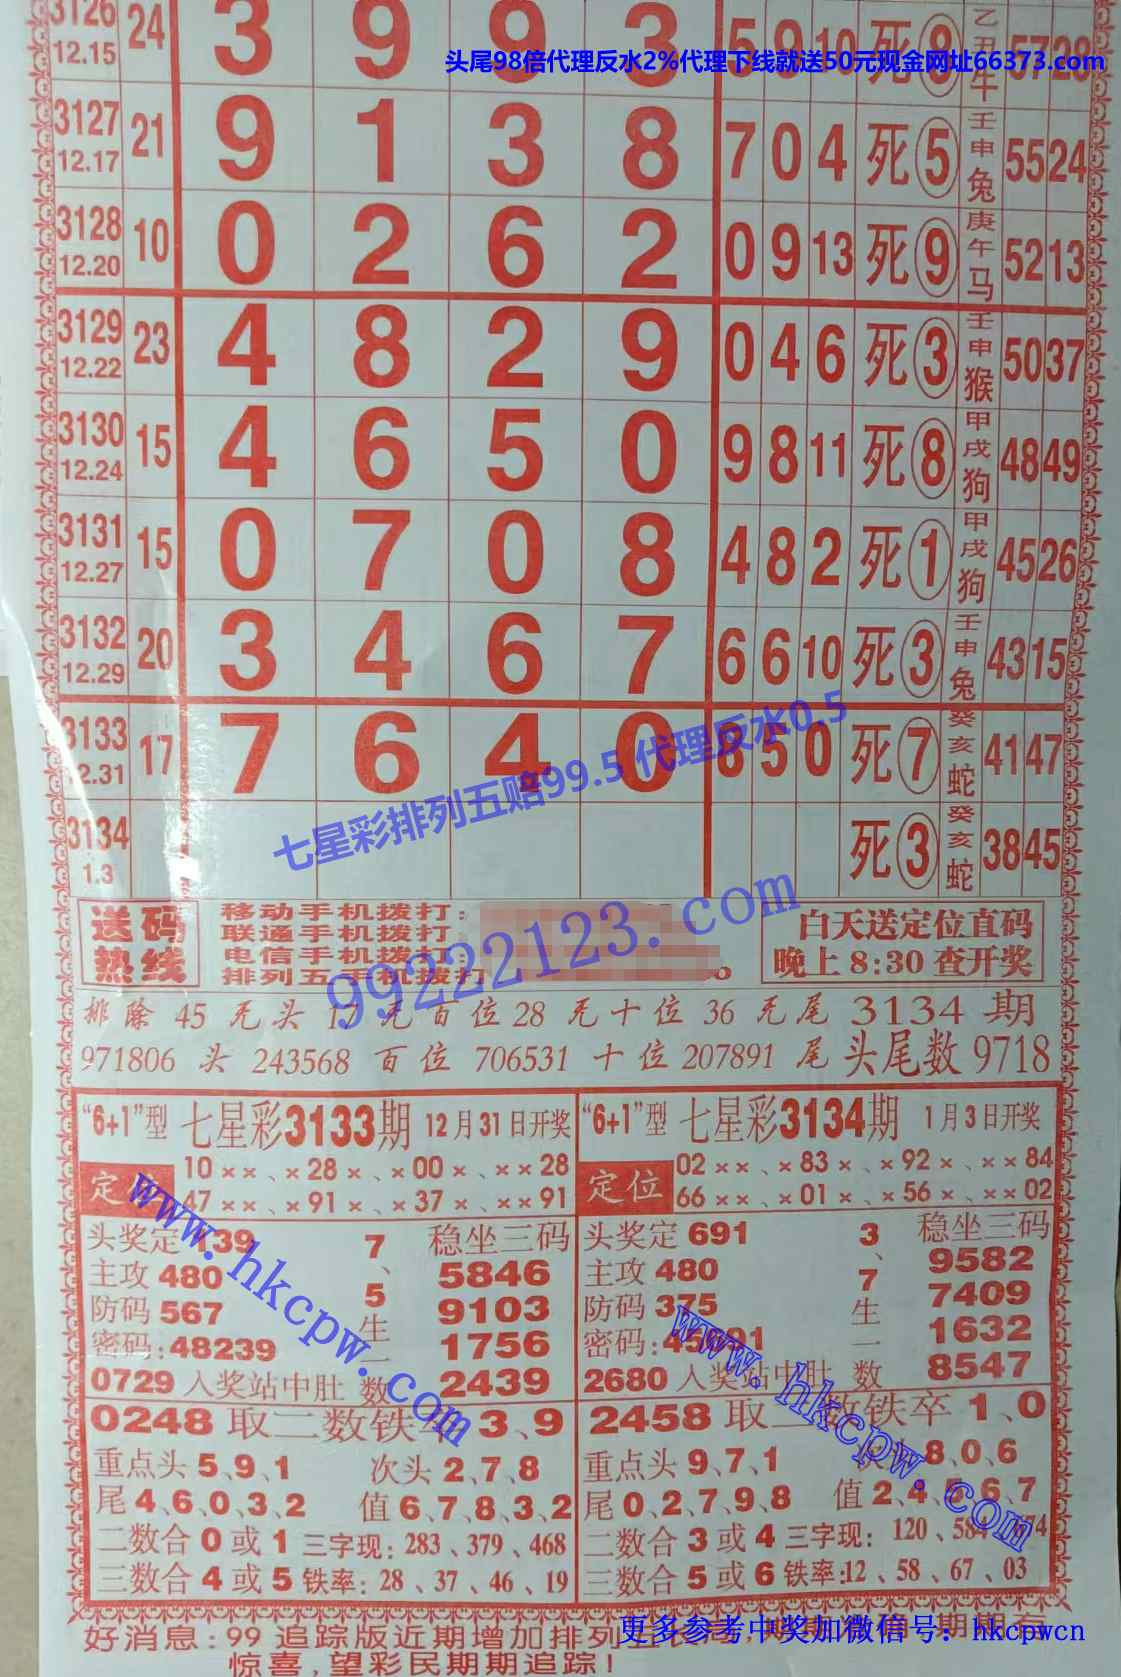 3126 12.15 24 3 9 9 3 5 9 10 死 9 乙丑牛 57 28
头尾98倍代理反水2%代理下线就送50元现金网址66373.com
3127 12.17 21 9 1 3 8 7 0 4 死 5 壬申兔 55 24
3128 12.20 10 0 2 6 2 0 9 13 死 9 庚午马 52 13
3129 12.22 23 4 8 2 9 0 4 6 死 3 壬申猴 50 37
3130 12.24 15 4 6 5 0 9 8 11 死 8 甲戌狗 48 49
3131 12.27 15 0 7 0 8 4 8 2 死 1 甲戌狗 45 26
3132 12.29 20 3 4 6 7 6 6 10 死 3 壬申兔 43 15
3133 12.31 17 7 6 4 0 6 5 0 死 7 癸亥蛇 41 47
七星彩排列五赔99.5 代理反水0.5
3134 1.3 死 3 癸亥蛇 38 45
99222123.com
送码热线
移动手机拨打:
联通手机拨打:
电信手机拨打:
排列五手机拨打
白天送定位直码
晚上8:30查开奖
排除 45 无头 17 无百位 28 无十位 36 无尾 3134 期
971806 头 243568 百位 706531 十位 207891 尾 头尾数 9718
“6+1”型 七星彩3133期 12月31日开奖
定
10××、×28×、×00×、××28
47××、×91×、×37×、××91
头奖定 139
主攻 480
防码 567
密码:48239
0729 入奖站中肚
7、5生一数
稳坐三码
5846
9103
1756
2439
0248 取二数铁卒 3、9
重点头 5、9、1 次头 2、7、8
尾 4、6、0、3、2 值 6、7、8、3、2
二数合 0 或 1 三字现: 283、379、468
三数合 4 或 5 铁率: 28、37、46、19
“6+1”型 七星彩3134期 1月3日开奖
定位
02××、×83×、×92×、××84
66××、×01×、×56×、××02
头奖定 691
主攻 480
防码 375
密码:
2680 入奖站中肚
3、7生一数
稳坐三码
9582
7409
1632
8547
2458 取二数铁卒 1、0
重点头 9、7、1 次头 8、0、6
尾 0、2、7、9、8 值 2、4、5、6、7
二数合 3 或 4 三字现: 120、584、674
三数合 5 或 6 铁率:12、58、67、03
www.hkcpw.com
www.hkcpw.com
好消息:99 追踪版近期增加排列
更多参考中奖加微信号: hkcpwcn
惊喜,望彩民期期追踪!